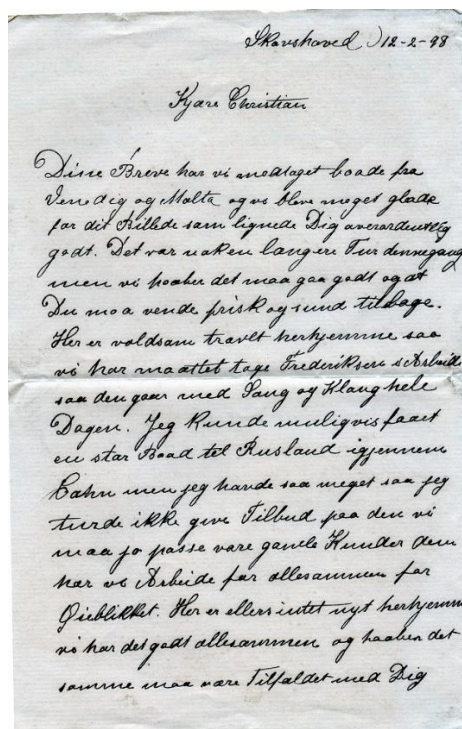 Skovshoved 12-2-98
Kjære Christian
Dine Breve har vi modtaget baade fra
Venedig og Malta og vi bleve meget glade
for dit Billede som lignede Dig overordentlig
godt. Det var noken længere Tur dennegang
men vi haaber det maa gaa godt og at
Du maa vende frisk og sund tilbage.
Her er voldsom travlt herhjemme saa
vi har maattet tage Frederiksens Arbeide
saa den gaar med Sang og Klang hele
Dagen. Jeg kunde muligvis faaet
en stor Baad til Rusland igjennem
Cahn men jeg havde saa meget saa jeg
turde ikke give Tilbud paa den vi
maa jo passe vore gamle Kunder dem
har vi Arbeide for allesammen for
Øieblikket. Her er ellers intet nyt herhjemme
vi har det godt allesammen og haaber det
samme maa være Tilfældet med Dig